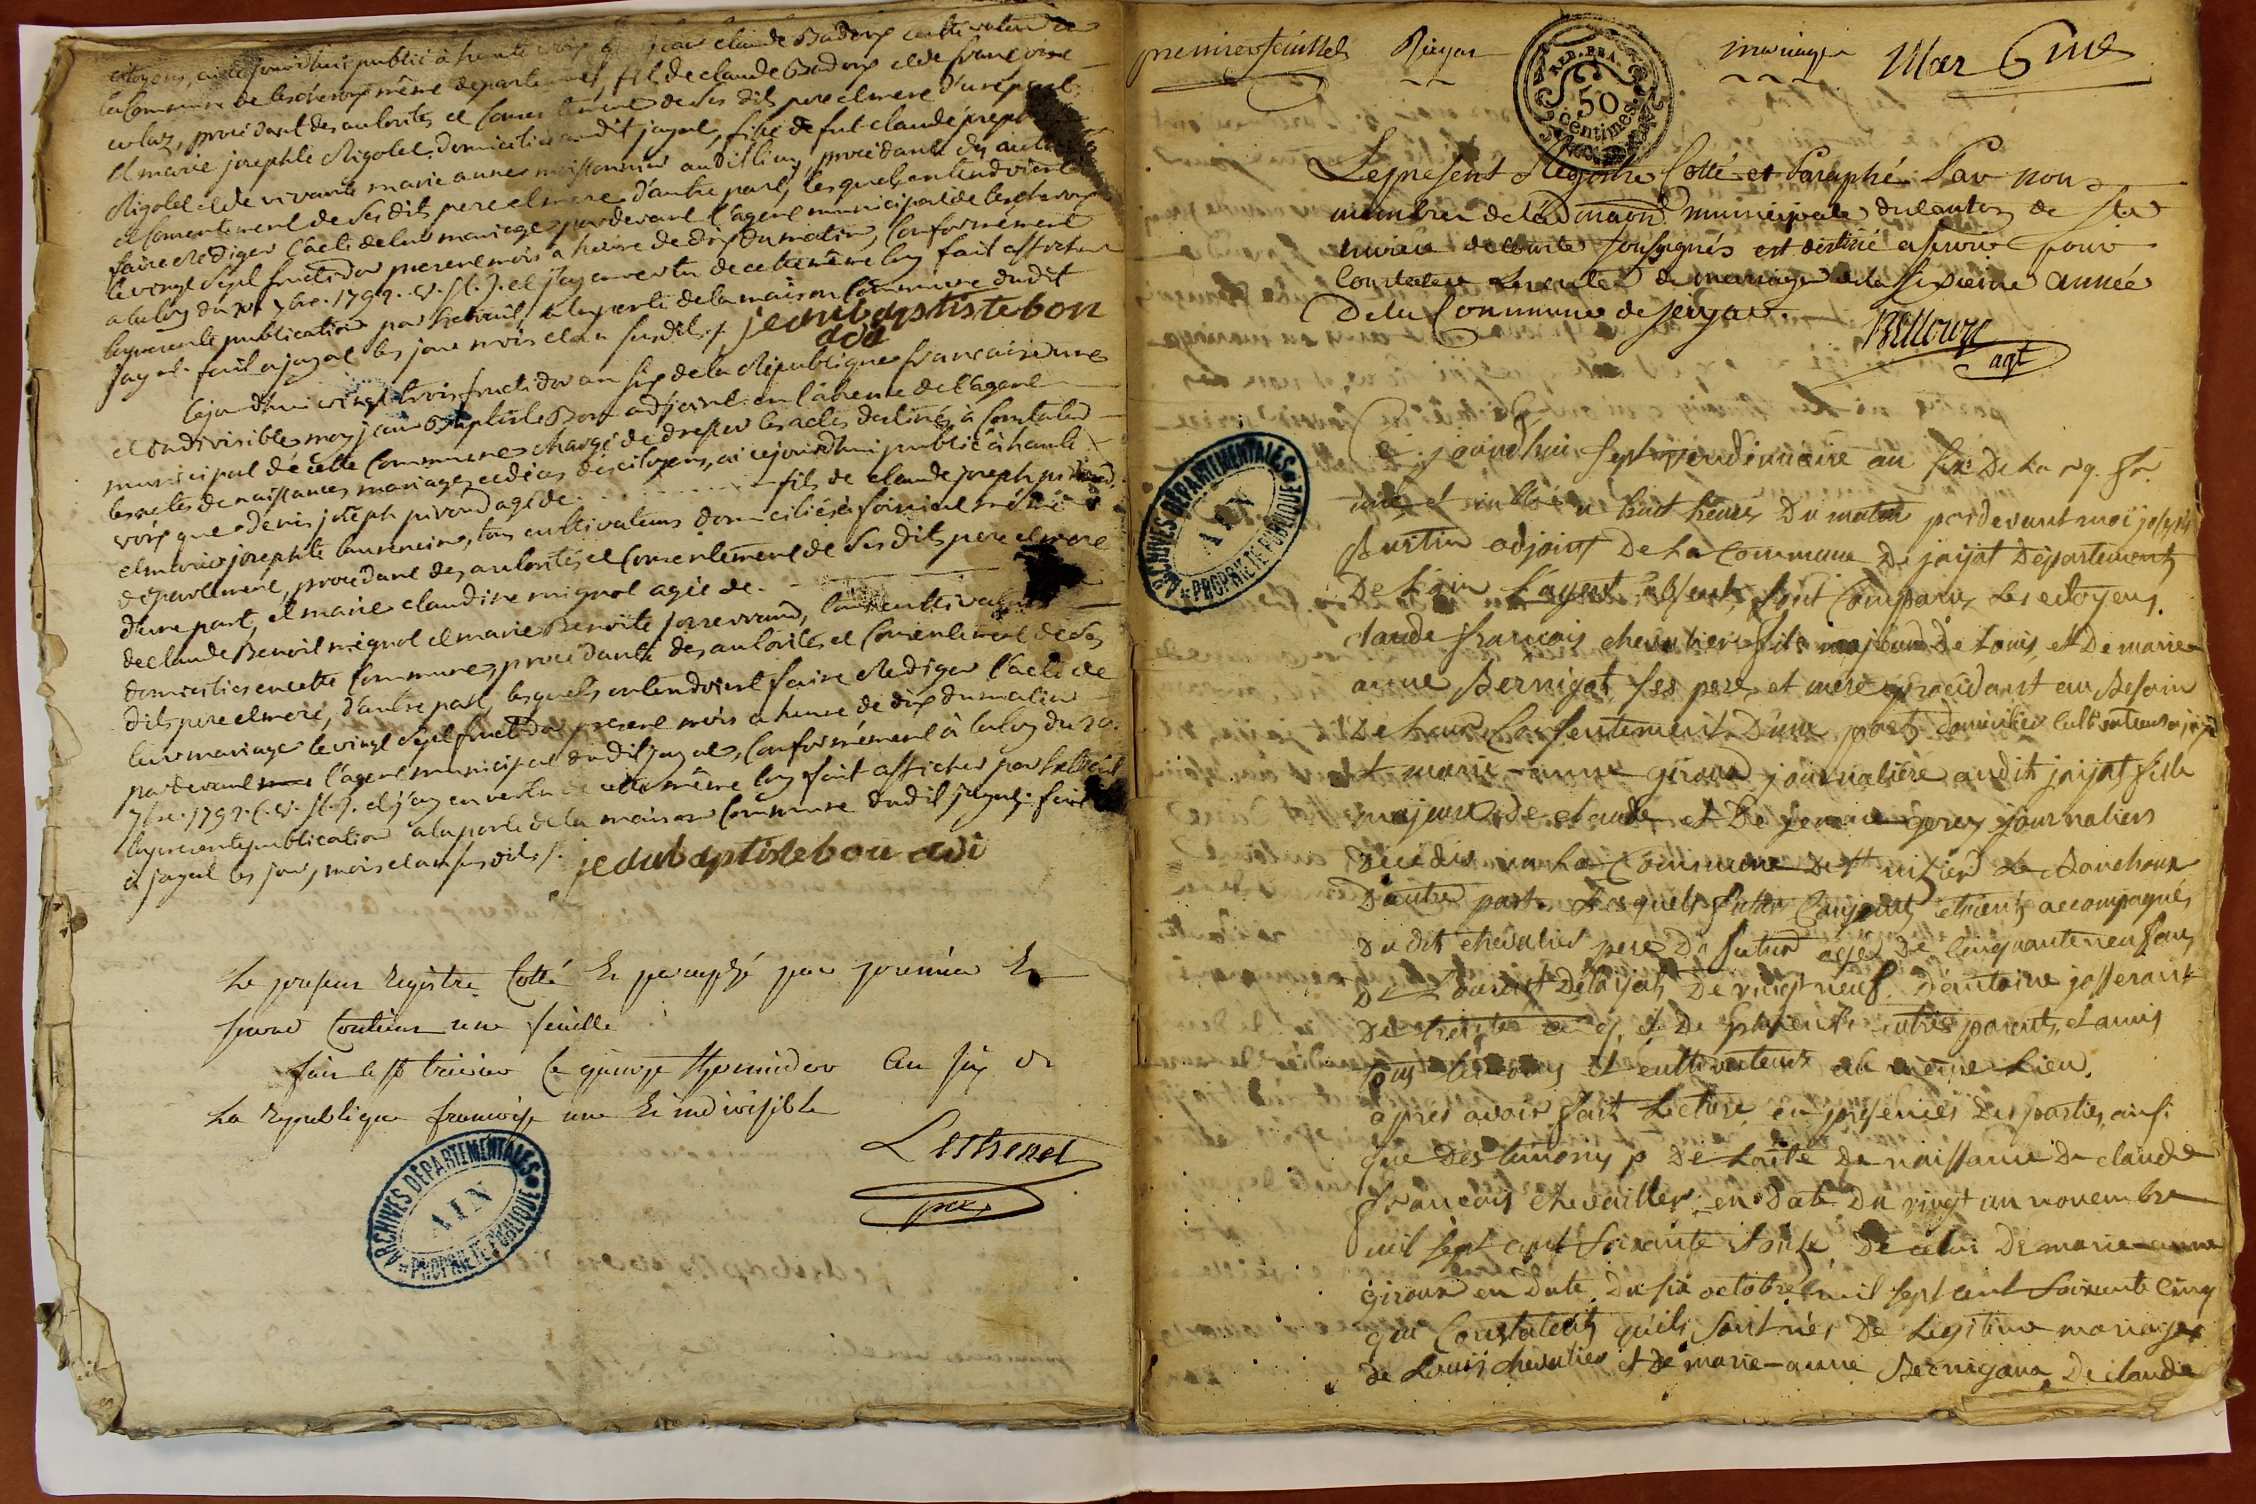 citoyens, ai cejourd'hui publié à haute voix que jean claude Badoux cultivateur de
la Commune de lescheroux même departement, fils de claude Badoux et de francoise
procédant des autorités et Consentement de ses dits pere et mere d'une part.
Et marie josephte Rigolet domiciliée audit jayat, fille de fut claude joseph
Rigolet et de vivante marie anne moissonnier audit lieu, procédante des autorités
et Consentement de ses dits pere et mere d'autre part, lesquels entendoient
faire Rediger l'acte de leur mariage pardevant l'agent municipal de lescheroux
le vingt sept fructidor present mois a heure de dix du matin, Conformément
a la loy du 20 7bre. 1792. v. st. et j'ay en vertu de cette même loy fait afficher
la presente publication par Extrait, a la porte de la maison Commune dudit
jayat. fait a jayat les jour mois et an susdits /. jeanbaptistebon
adj
Cejourd'hui vingt trois fructidor an six de la République francaise une
et indivisible, moy jean Baptiste Bon adjoint en l'absence de l'agent
municipal de cette Commune chargé de dresser les actes destinés à Constater
les actes de naissances mariages et décès des citoyens, ai cejourd'hui publié à haute
voix que denis joseph pivond agé de fils de claude joseph pivond
et marie josephte laurencin, tous cultivateurs domiciliés à foissiat même
departement, procédant des autorités et Consentement de ses dits pere et mere
d'une part, et marie claudine mignot agée de
de claude Benoit mignot et marie Benoite josserand, tous cultivateurs
domiciliés en cette Commune, procédante des autorités et Consentement de ses
dits pere et mere, d'autre part, lesquels entendoient faire Rediger l'acte de
leur mariage le vingt sept fructidor present mois a heure de dix du matin
pardevant l'agent municipal dudit jayat, Conformément à la loy du 20.
7bre. 1792. (v. st.) et j'ay en vertu de cette même loy fait afficher par Extrait
la presente publication a la porte de la maison Commune dudit jayat. fait
à jayat les jour, mois et an susdits /. jeanbaptistebon adj
Le present Registre Cotté Et paraphé par premier Et
Contient une feuille
fait a St trivier le quinze thermidor an six de
la republique francaise une Et indivisible
Lesthenet
pre
premier feuillet Rejar mariage Mar 6 me
REP. FRA.
50
centimes
Le present Registre Cotté et Paraphé Par nous
membre de l'admaon municipale du canton de St
trivier de courtes soussignés est destiné a servir pour
Constater les actes de mariage de la sixieme année
De la Commune de Jayat.
agt
Cejourd'hui sept vendemiaire an six De La rep. fr.
une et indble a huit heures Du matin pardevant moi joseph
adjoint De La Commune De jayat Département
De L'ain L'agent absent, sont Comparus Les citoyens.
claude francois chevalier fils majeur De Louis, et De marie
anne Bernigat ses pere et mere procédant au Besoin
De Leurs Consentement D'une part, domicilié cultivateur a jayat
Et marie-anne giroux journaliere audit jayat fille
majeure de claude et De journaliers
Décédés en La Commune De St nizier Le Bouchoux
D'autre part. Lesquels futur Conjoints etoients accompagnés
Du dit chevalier pere Du futur agé De Cinquante neuf ans
De De jayat De vingt neuf D'antoine josserant
De trente cinq et De plusieurs autres parents et amis
tous temoins Et cultivateurs au même Lieu.
apres avoir fait Lecture en presence Des parties ainsi
que Des temoins De Lacte De naissance De claude
francois chevallier en date Du vingt un novembre
mil sept cent soixante De celui De marie-anne
giroux en Date. Du six octobre mil sept cent soixante cinq
qui Constatent qu'ils sont nés De Legitime mariage
De Louis chevalier et De marie-anne Bernigaux De claude
ARCHIVES DÉPARTEMENTALES
AIN
PROPRIETE PUBLIQUE
ARCHIVES DÉPARTEMENTALES
AIN
PROPRIETE PUBLIQUE